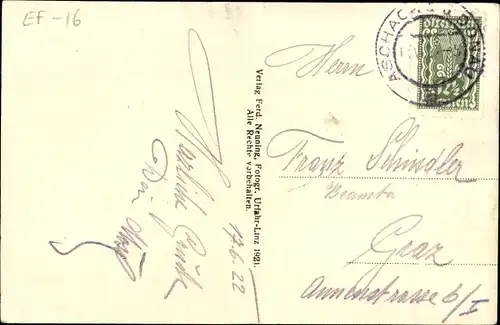 EF-16
ASCHACH A.D. DONAU
Herrn
Franz Schindler
Beamter
Graz
Annenstrasse 6/I
Verlag Ferd. Nenning, Fotogr. Urfahr-Linz 1921.
Alle Rechte vorbehalten.
17.6.22
Herzliche Grüße
Dein